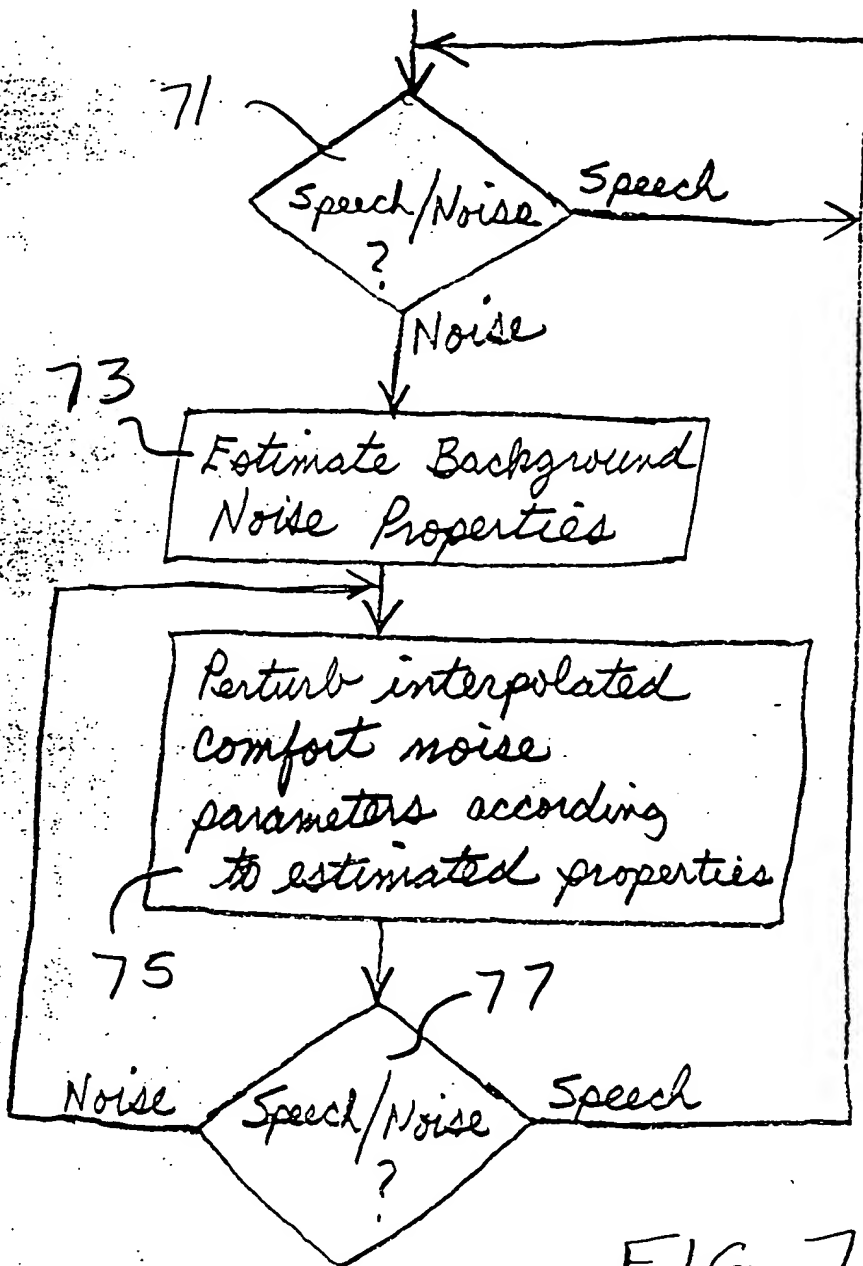 71
Speech/Noise
?
Speech
Noise
73
Estimate Background
Noise Properties
Perturb interpolated
comfort noise
parameters according
to estimated properties
75
77
Noise
Speech/Noise
?
Speech
FIG. 7